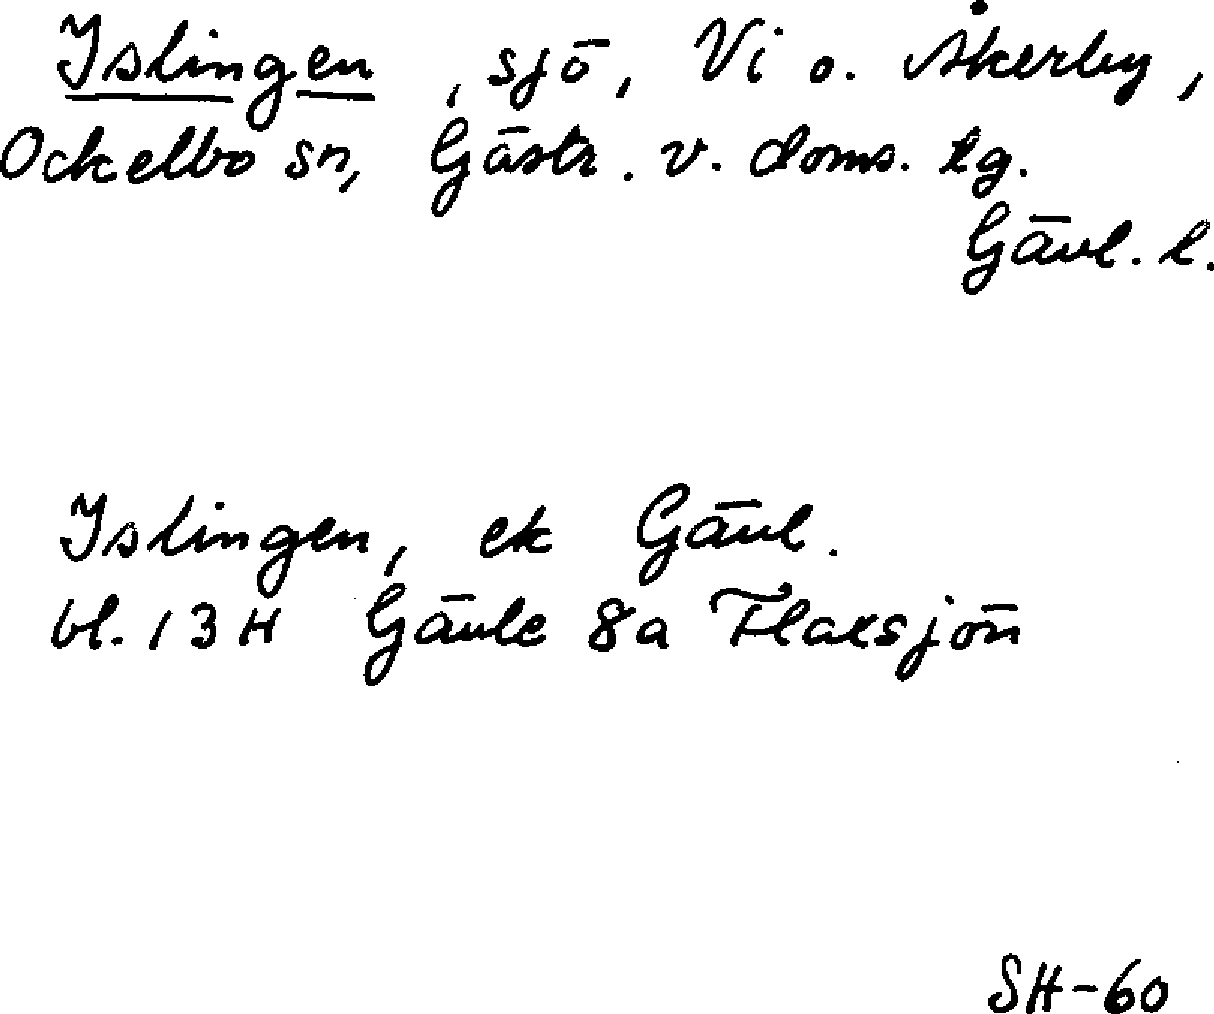 Islingen, sjö, Vi o. Åkerby,
Ockelbo sn, Gästr. v. doms. lg.
Gävl. l.
Islingen, ek Gävl.
bl. 13H Gävle 8a Flaxsjön
SH-60